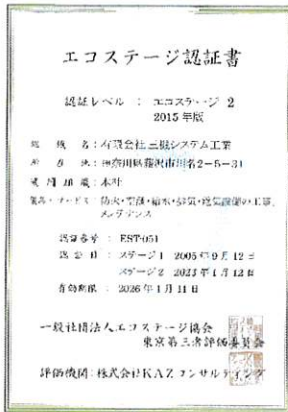 エコステージ認証書
認証レベル : エコステージ 2
2015年版
組織名:有限会社三堀システム工業
所在地:神奈川県藤沢市川名2-5-31
適用組織:本社
製品・サービス:防火・空調・給水・排気・電気設備の工事、
メンテナンス
認証番号 : EST-051
認証日 : ステージ1 2005年9月12日
ステージ2 2023年1月12日
有効期限 : 2026年1月11日
一般社団法人エコステージ協会
東京第三者評価委員会
評価機関:株式会社KAZコンサルティング